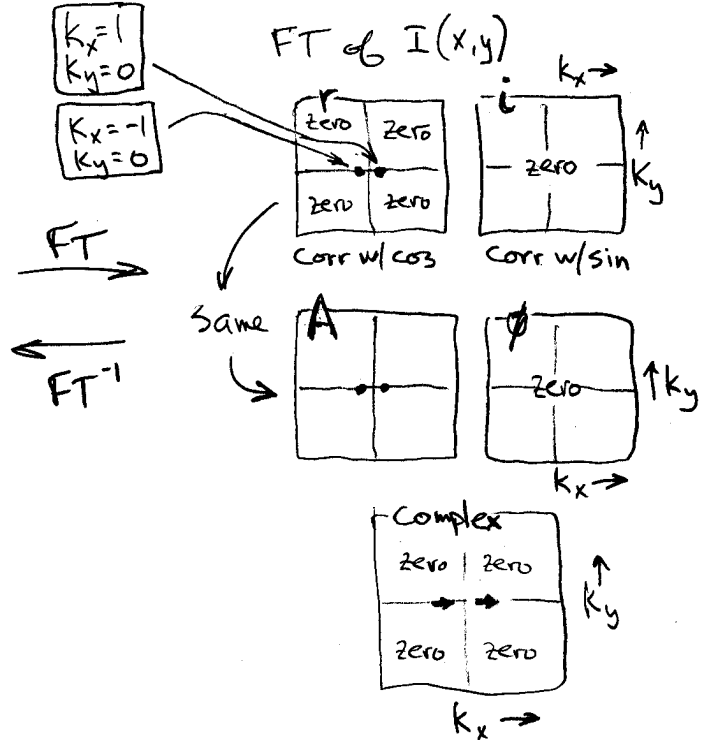 Kx=1
Ky=0
Kx=-1
Ky=0
FT of I(x,y)
kx →
r
i
zero
zero
zero
zero
zero
↑
Ky
corr w/cos
corr w/sin
FT
FT⁻¹
same
A
ø
zero
↑ Ky
kx →
complex
zero
zero
zero
zero
↑
Ky
kx →